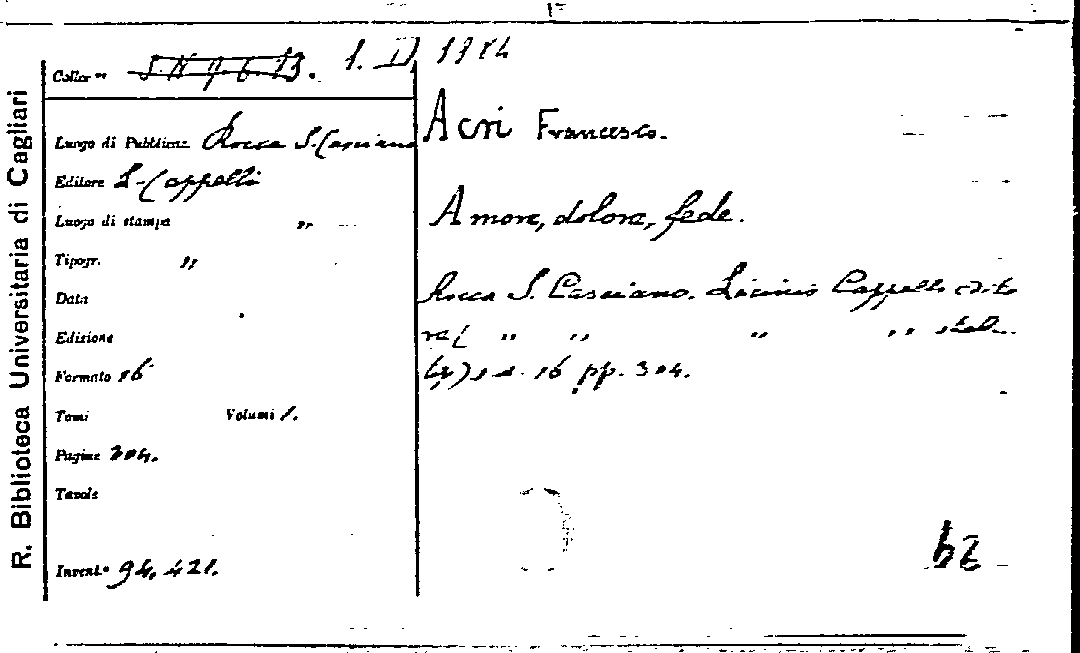 R. Biblioteca Universitaria di Cagliari
Colloc.ne S.N 9.6.13. 1. D 1914
Luogo di Pubblicaz. Rocca S. Casciano
Editore L. Cappelli
Luogo di stampa „
Tipogr. „
Data
Edizione
Formato 16
Tomi Volumi 1.
Pagine 304.
Tavole
Invent.º 94.421.
Acri Francesco.
Amore, dolore, fede.
Rocca S. Casciano. Licinio Cappelli edito
re „ „ „ „
16 pp. 304.